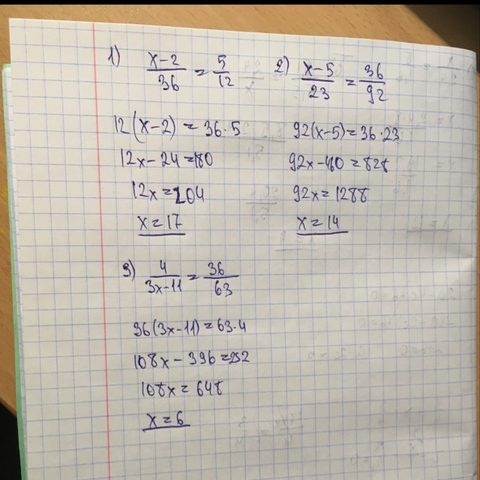 1) x-2/36 = 5/12
12(x-2) = 36·5
12x-24=180
12x=204
x=17
2) x-5/23 = 36/92
92(x-5)=36·23
92x-460=828
92x=1288
x=14
3) 4/3x-11 = 36/63
36(3x-11)=63·4
108x-396=252
108x=648
x=6